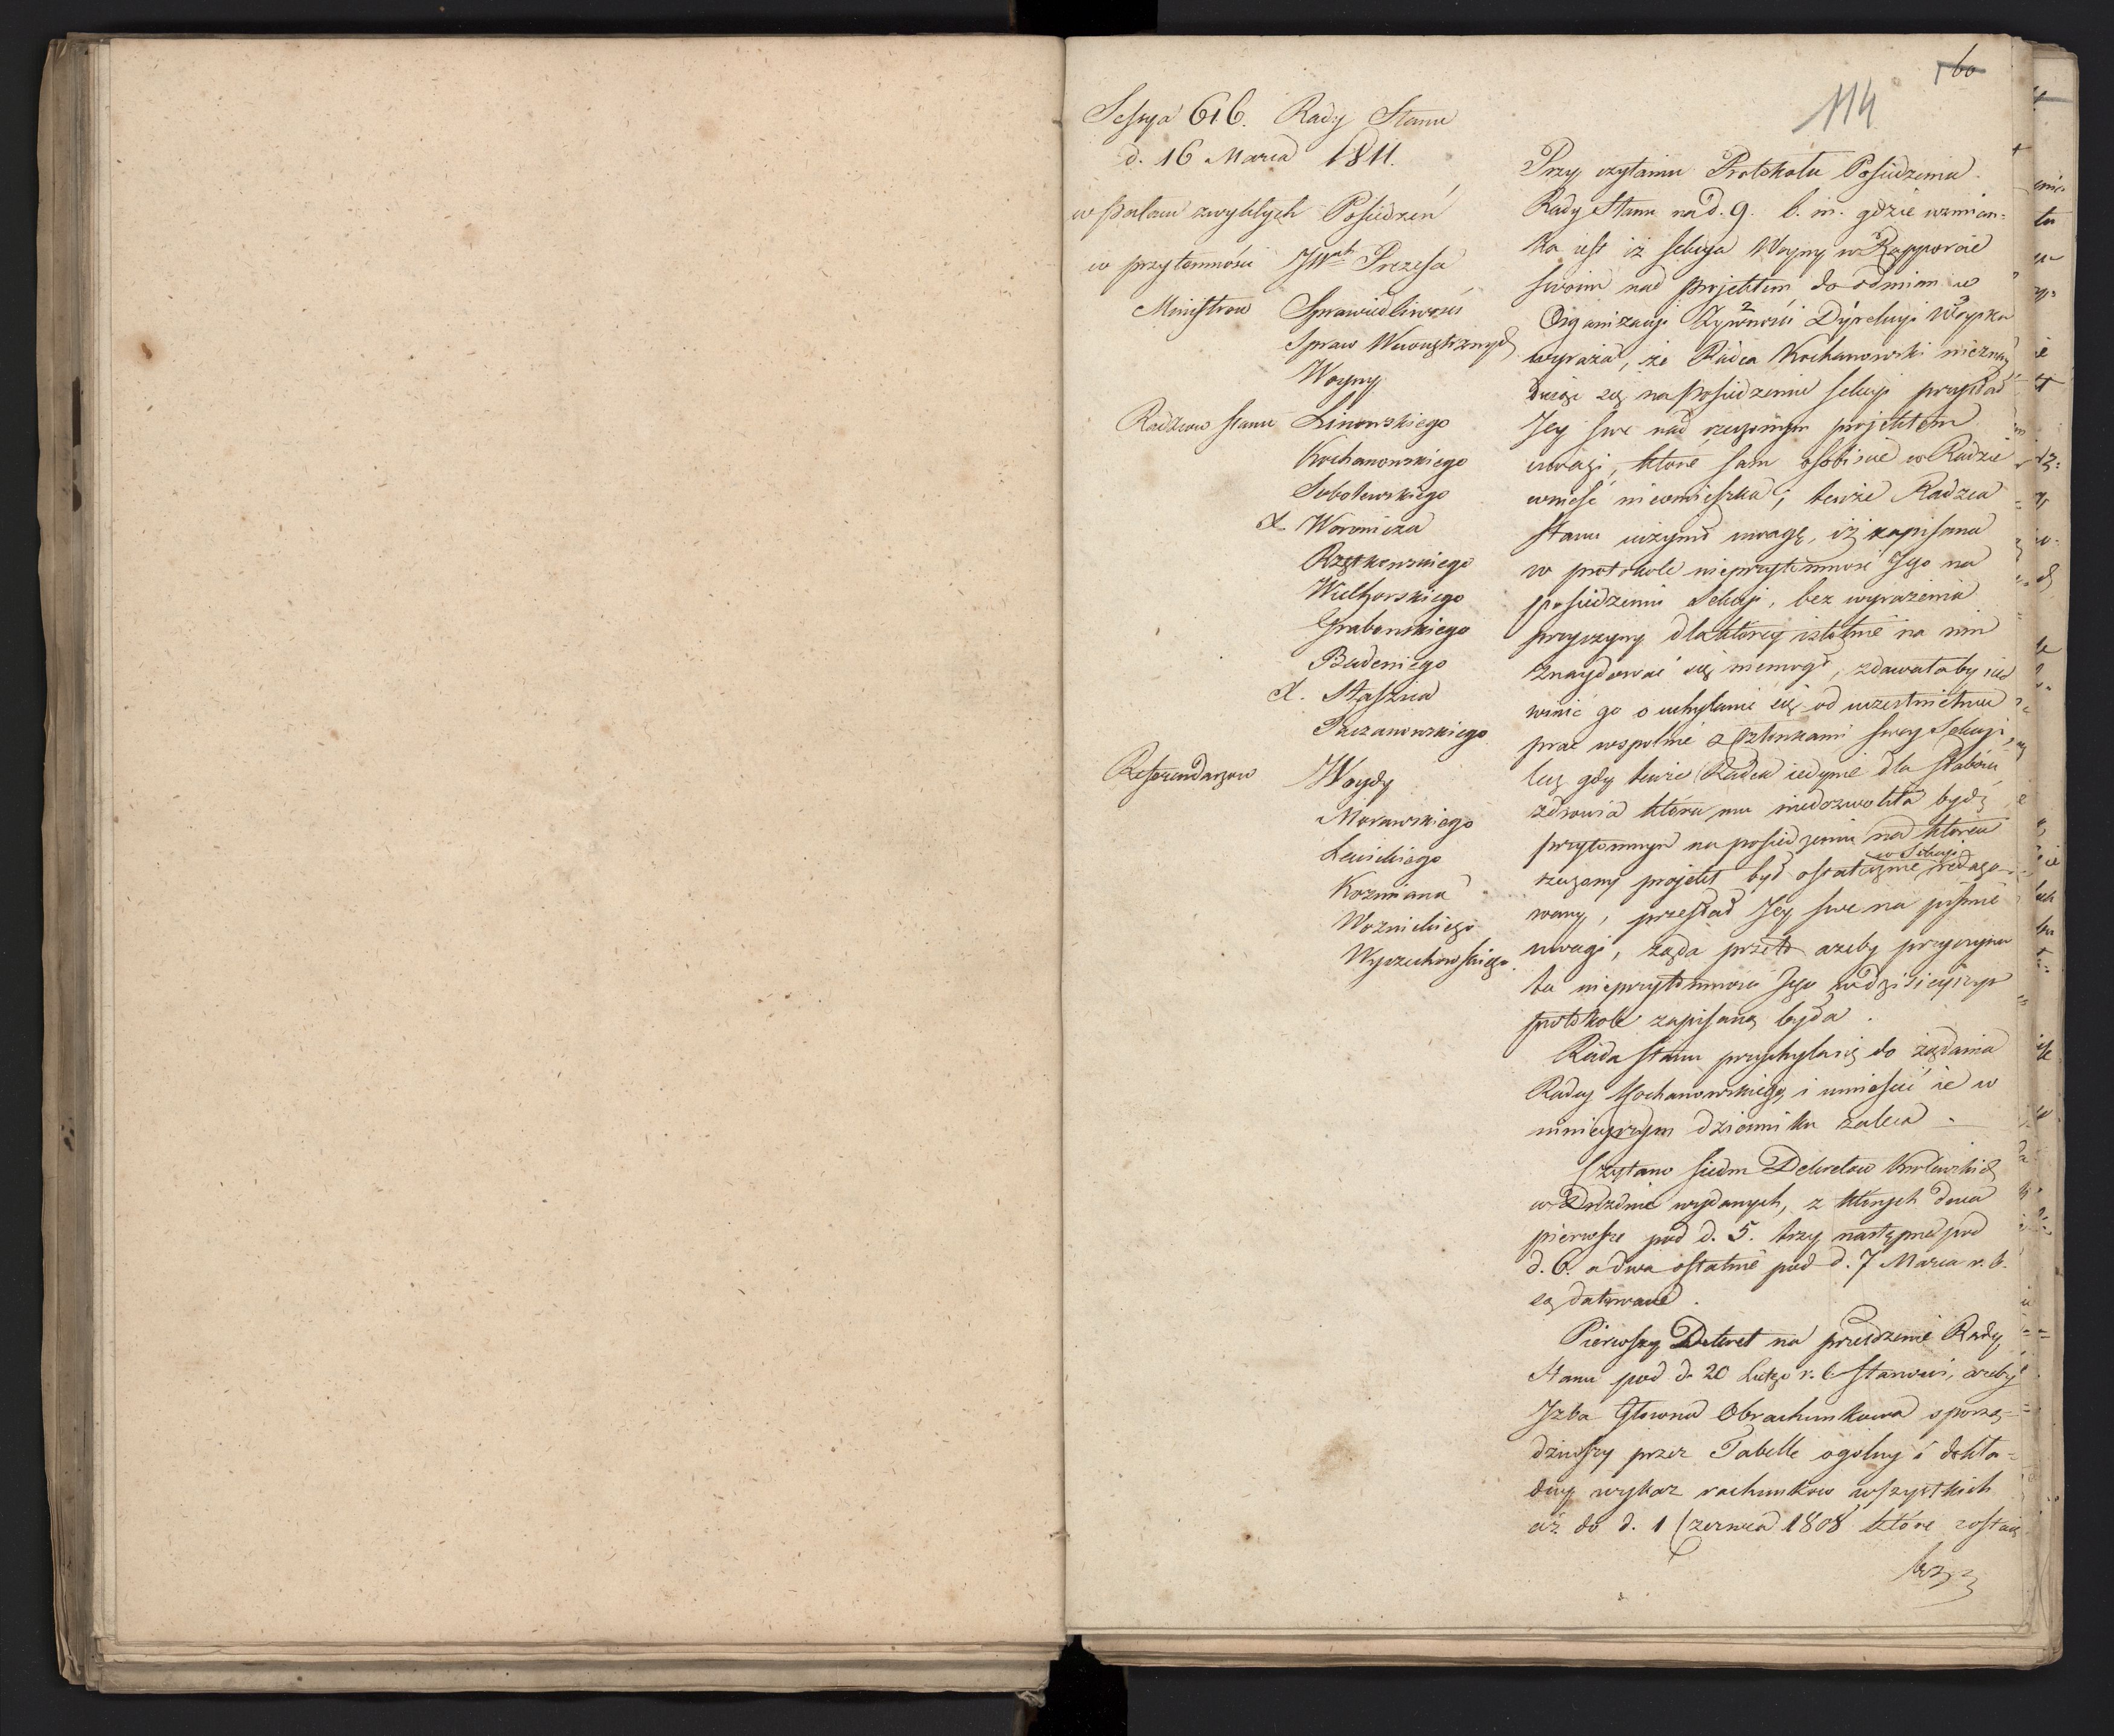 60
114
Sessya 616. Rady Stanu
d. 16 Marca 1811.
w pałacu zwykłych Posiedzeń
w przytomności JWch Prezesa
Ministrow Sprawiedliwości
Spraw Wewnętrznych
Woyny
Radzcow Stanu Linowskiego
Kochanowskiego
Sobolewskiego
X Woronicza
Rzętkowskiego
Wielhorskiego
Grabowskiego
Badeniego
X. Staszica
Suczanowskiego
Referendarzow Woydy
Morawskiego
Lewickiego
Kozmiana
Woznickiego
Wyczechowskiego
Przy czytaniu Protokołu Posiedzenia
Rady Stanu na d. 9. b. m. gdzie wzmian=
ka iest iż Sekcya Woyny w Rapporcie
swoim nad projektem do odmian w
Organizacyi Żywności Dyrekcyi Woyska
2 3
wyraża, że Radca Kochanowski nieznay
duiąc się na Posiedzeniu Sekcyi przysłał
Jey swe nad rzeczonym projektem
uwagi, które sam osobiście w Radzie
wnieść nieomieszka; tenże Radzca
Stanu uczynił uwagę, iż zapisana
w protokole nieprzytomność Jego na
posiedzeniu Sekcyi, bez wyrażenia
przyczyny dla ktorey istotnie na nim
znaydować się niemogł, zdawałaby się
winić go o uchylanie się od uczestnictwa
prac wspolnie z Członkami swey Sekcyi,
lecz gdy tenże Radca iedynie dla słabości
zdrowia która mu niedozwoliła bydź
przytomnym na posiedzeniu na ktorem
w Sekcyi
rzeczony projekt był ostatecznie redago-
wany, przesłał Jey swe na piśmie
uwagi, żąda przeto azeby przyczyna
ta nieprzytomności Jego w dzisieyszym
protokole zapisaną była.
Rada Stanu przychyla się do żądania
Radcy Kochanowskiego, i umieścić ie w
ninieyszym dzienniku zaleca.
Czytano siedm Dekretow Krolewskich
w Dreznie wydanych, z ktorych dwa
pierwsze pod d. 5. trzy następne pod
d. 6. a dwa ostatnie pod d. 7 Marca r. b.
są datowane.
Pierwszy Dekret na Posiedzenie Rady
Stanu pod d. 20 Lutego r. b. stanowi, azeby
Jzba Głowna Obrachunkowa sporzą-
dziwszy przez Tabelle ogolny i dokła=
dny wykaz rachunkow wszystkich
aż do d. 1 Czerwca 1808 które zostaią